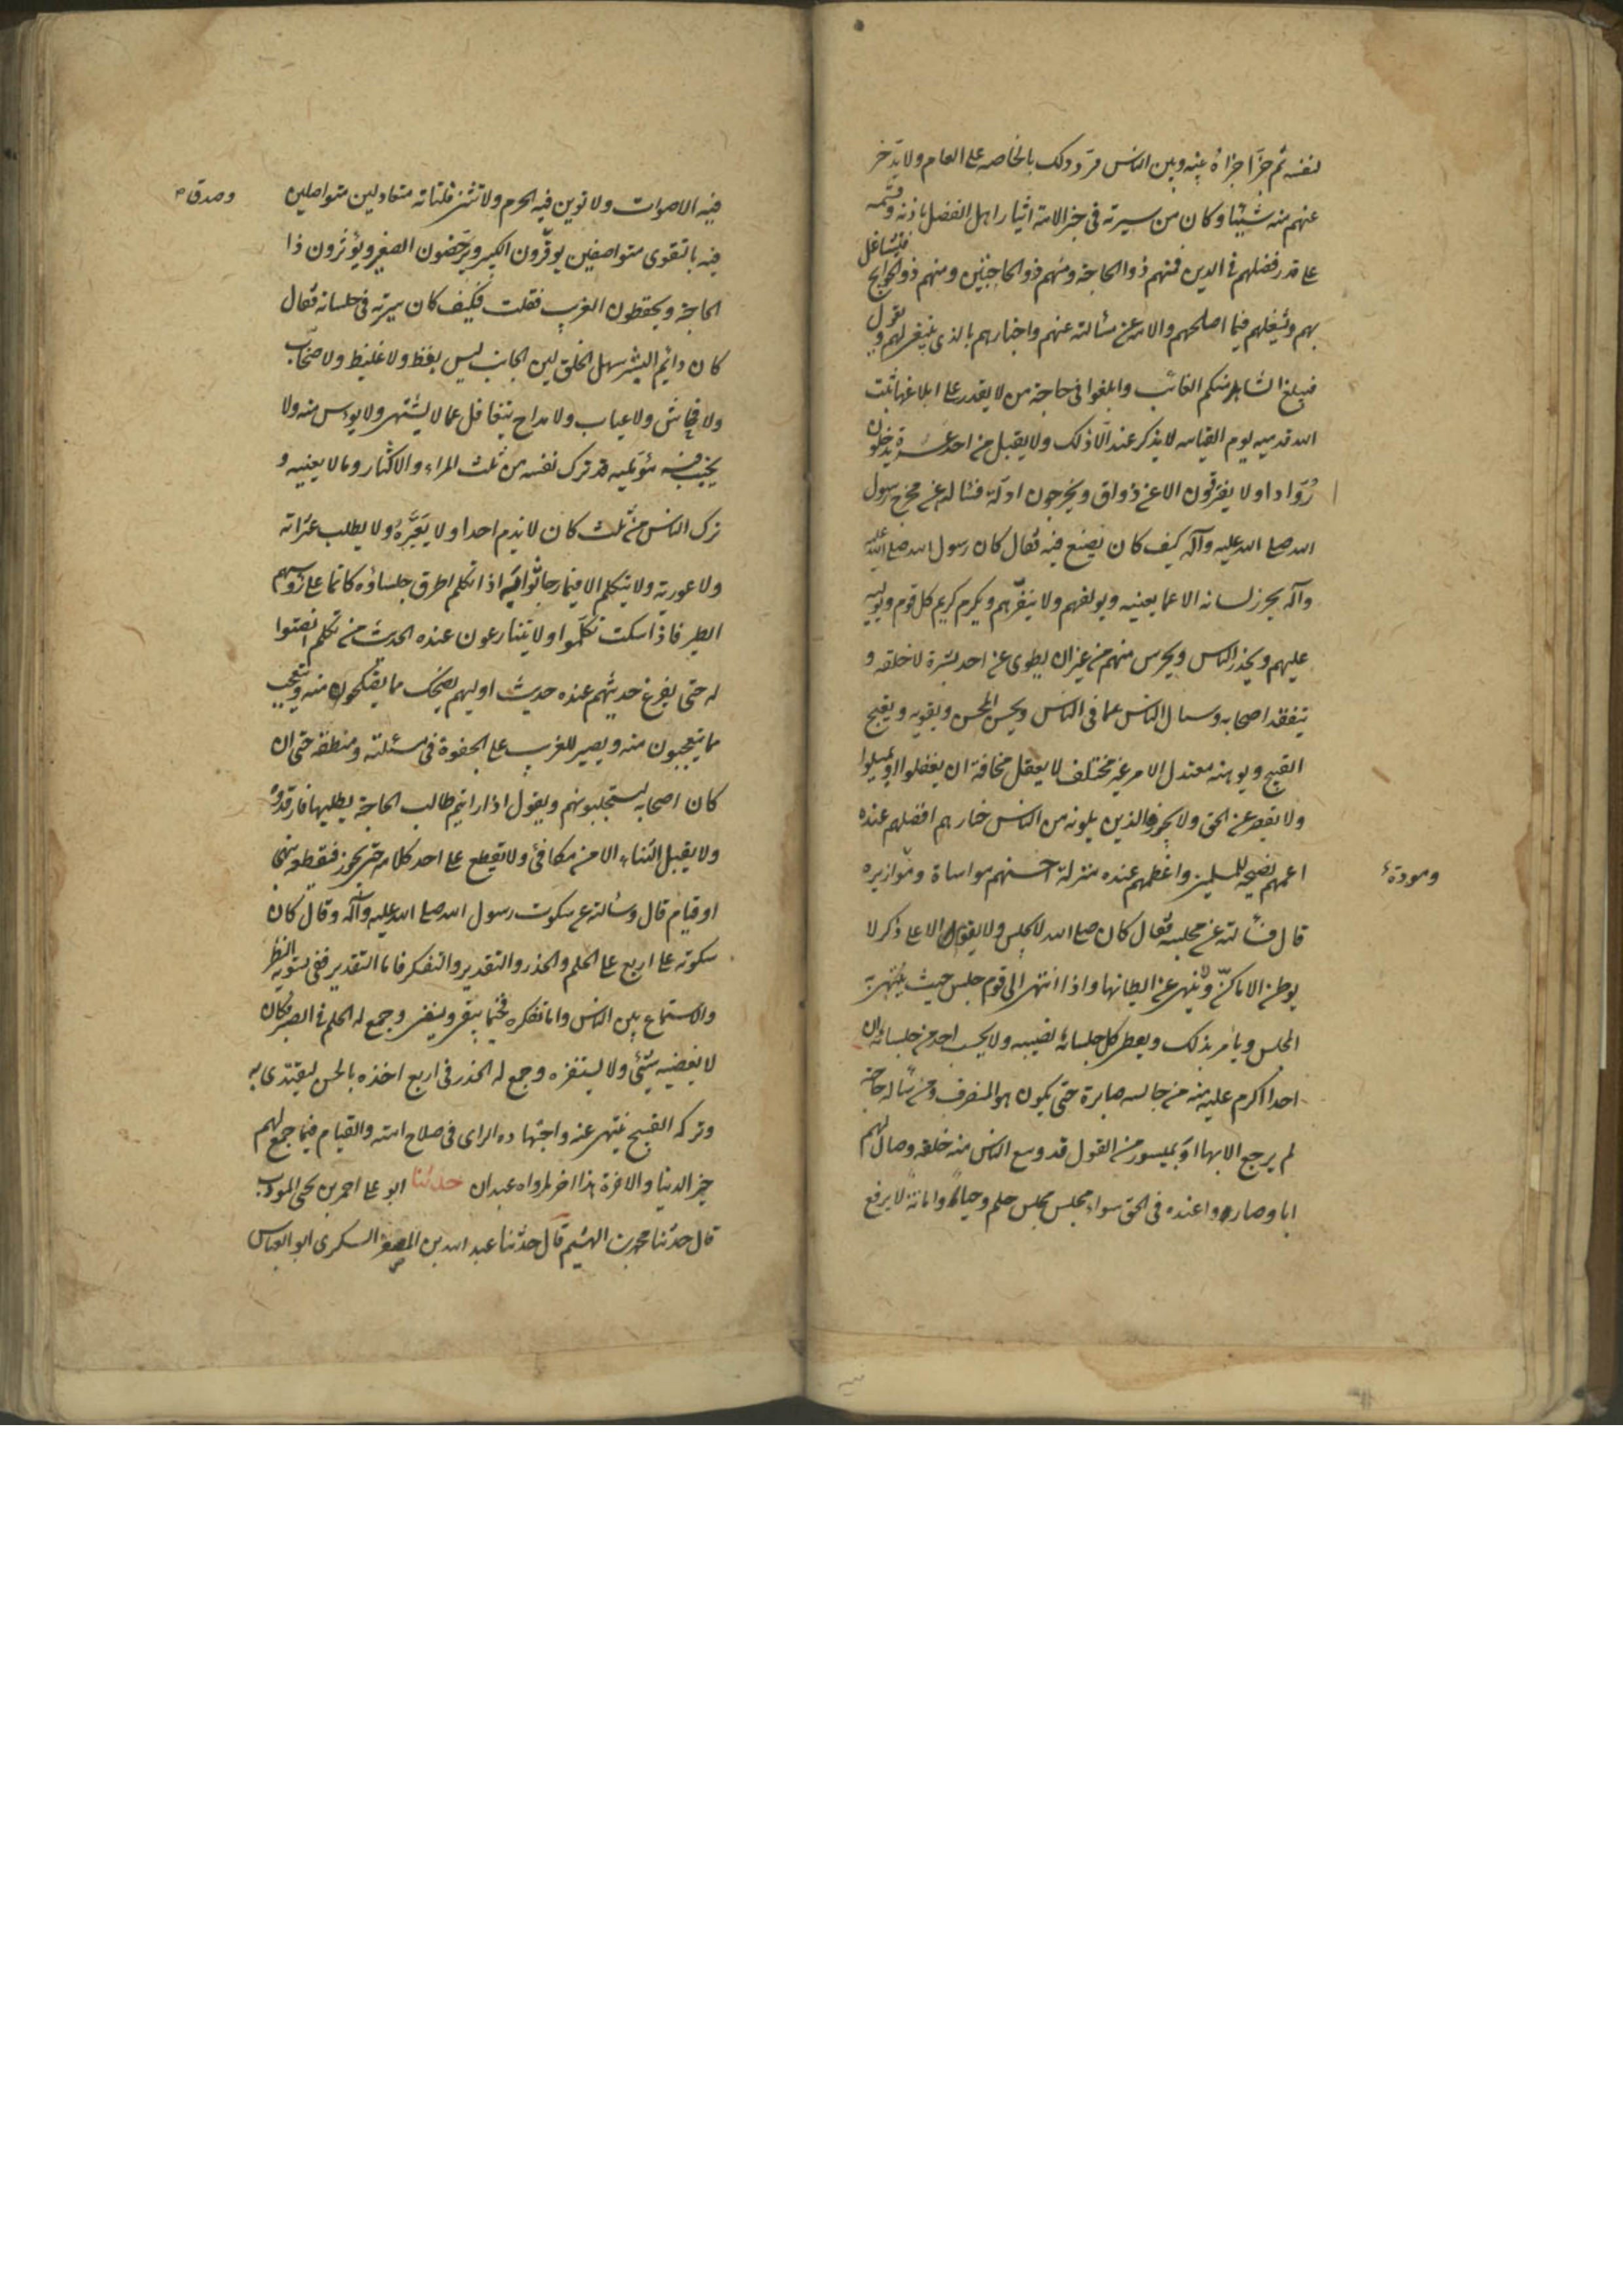 لنفسه ثم جزأ جزأه بينه وبين الناس فرد ذلك بالخاصه على العام ولا يدخر
عنهم منه شيئا وكان من سيرته فى جزء الامة ايثار اهل الفضل باذنه وقسمه
على قدر فضلهم فى الدين فمنهم ذو الحاجة ومنهم ذو الحاجتين ومنهم ذو الحوايج فيتشاغل
بهم ويشغلهم فيما اصلحهم والامة عن مسألته عنهم واخبارهم بالذى ينبغى لهم ويقول
فيبلغ الشاهد منكم الغائب وابلغوا فى حاجة من لا يقدر على ابلاغها ثبت
الله قدميه يوم القيامه لا يذكر عنده الا ذلك ولا يقبل من احد عثرة يدخلون
روادا ولا يفترقون الا عن ذواق ويخرجون ادلة فسألته عن مخرج رسول
الله صلى الله عليه وآله كيف كان يصنع فيه فقال كان رسول الله صلى الله عليه
وآله يخزن لسانه الا عما يعنيه ويولفهم ولا ينفرهم ويكرم كريم كل قوم ويوليه
عليهم ويحذر الناس ويحرس منهم من غير ان يطوى عن احد بشره ولا خلقه و
يتفقد اصحابه وسال الناس عما فى الناس ويحسن الحسن ويقويه ويقبح
القبيح ويوهنه معتدل الامر غير مختلف لا يغفل مخافة ان يغفلوا او يميلوا
ولا يقصر عن الحق ولا يجوزه الذين يلونه من الناس خيارهم افضلهم عنده
اعمهم نصيحة للمسلمين واعظمهم عنده منزلة احسنهم مواساة وموازيره
ومودة
قال فسألته عن مجلسه فقال كان صلى الله لا يجلس ولا يقوم الا على ذكر لا
يوطن الاماكن وينهى عن ايطانها واذا انتهى الى قوم جلس حيث ينتهى به
المجلس ويأمر بذلك ويعطى كل جلسائه نصيبه ولا يحسب احد من جلسائه ان
احدا اكرم عليه منه من جالسه صابره حتى يكون هو المنصرف ومن سأله حاجة
لم يرجع الا بها او بميسور من القول قد وسع الناس منه خلقه وصار لهم
ابا وصاروا عنده فى الحق سواء مجلسه مجلس حلم وحياء وامانة لا يرفع
فيه الاصوات ولا توبن فيه الحرم ولا تنثى فلتاته متعادلين متواصلين
وصدق
فيه بالتقوى متواضعين يوقرون الكبير ويرحمون الصغير ويؤثرون ذا
الحاجة ويحفظون الغريب فقلت فكيف كان سيرته فى جلسائه فقال
كان دائم البشر سهل الخلق لين الجانب ليس بفظ ولا غليظ ولا صخاب
ولا فحاش ولا عياب ولا مداح يتغافل عما لا يشتهى ولا يويس منه ولا
يخيب فيه مؤمليه قد ترك نفسه من ثلث المراء والاكثار وما لا يعنيه و
ترك الناس من ثلث كان لا يذم احدا ولا يعيره ولا يطلب عثراته
ولا عورته ولا يتكلم الا فيما رجا ثوابه اذا تكلم اطرق جلساؤه كانما على رؤسهم
الطير فاذا سكت تكلموا ولا يتنازعون عنده الحديث من تكلم انصتوا
له حتى يفرغ حديثهم عنده حديث اوليهم يضحك مما يضحكون منه ويتعجب
مما يتعجبون منه ويصبر للغريب على الجفوة فى مسئلته ومنطقه حتى ان
كان اصحابه ليستجلبونهم ويقول اذا رايتم طالب الحاجة يطلبها فارفدوه
ولا يقبل الثناء الا من مكافئ ولا يقطع على احد كلامه حتى يجوز فيقطعه بنهى
او قيام قال وسألته عن سكوت رسول الله صلى الله عليه وآله وقال كان
سكوته على اربع على الحلم والحذر والتقدير والتفكر فاما التقدير ففى تسوية النظر
والاستماع بين الناس واما تفكره فيما يبقى ويفنى وجمع له الحلم فى الصبر فكان
لا يغضبه شئ ولا يستفزه وجمع له الحذر فى اربع اخذه بالحسن ليقتدى به
وتركه القبيح لينتهى عنه واجتهاده الراى فى صلاح امته والقيام فيما جمع لهم
خير الدنيا والآخرة هذا اخر ما رواه عبدان حدثنا ابو على احمد بن يحيى المودب
قال حدثنا محمد بن الهيثم قال حدثنا عبد الله بن الصقر السكرى ابو العباس